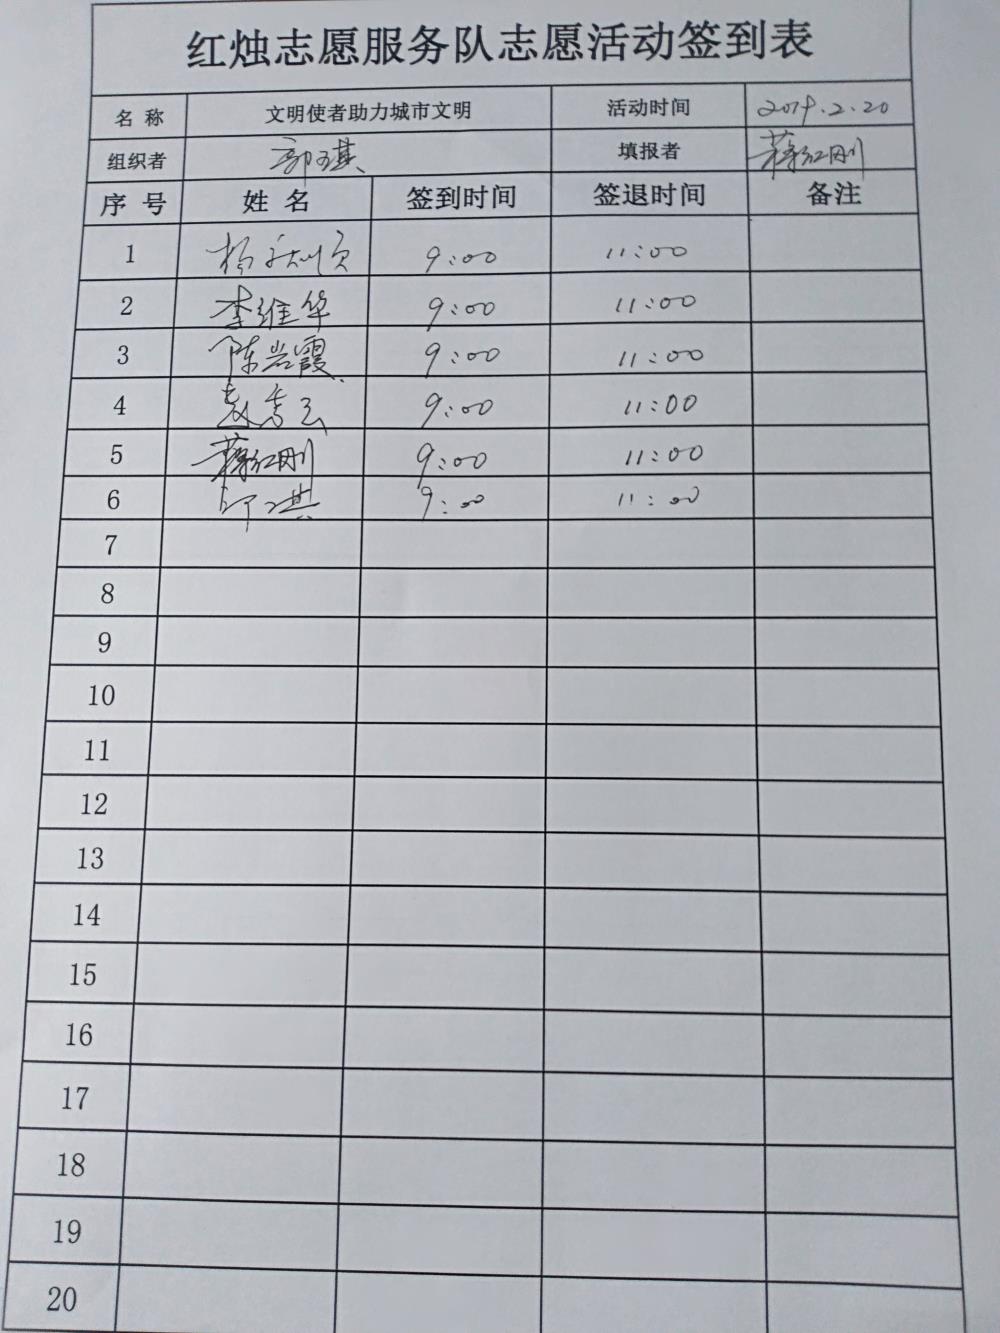 红烛志愿服务队志愿活动签到表
名 称 文明使者助力城市文明 活动时间 2019.2.20
组织者 郭琪 填报者 蒋红刚
序 号 姓 名 签到时间 签退时间 备注
1 杨 9:00 11:00
2 李维华 9:00 11:00
3 陈岩霞 9:00 11:00
4 9:00 11:00
5 蒋红刚 9:00 11:00
6 琪 9:00 11:00
7
8
9
10
11
12
13
14
15
16
17
18
19
20